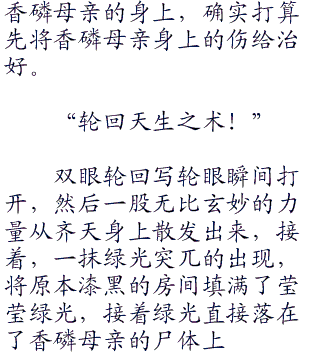 香磷母亲的身上，确实打算
先将香磷母亲身上的伤给治
好。
“轮回天生之术！”
双眼轮回写轮眼瞬间打
开，然后一股无比玄妙的力
量从齐天身上散发出来，接
着，一抹绿光突兀的出现，
将原本漆黑的房间填满了莹
莹绿光，接着绿光直接落在
了香磷母亲的尸体上